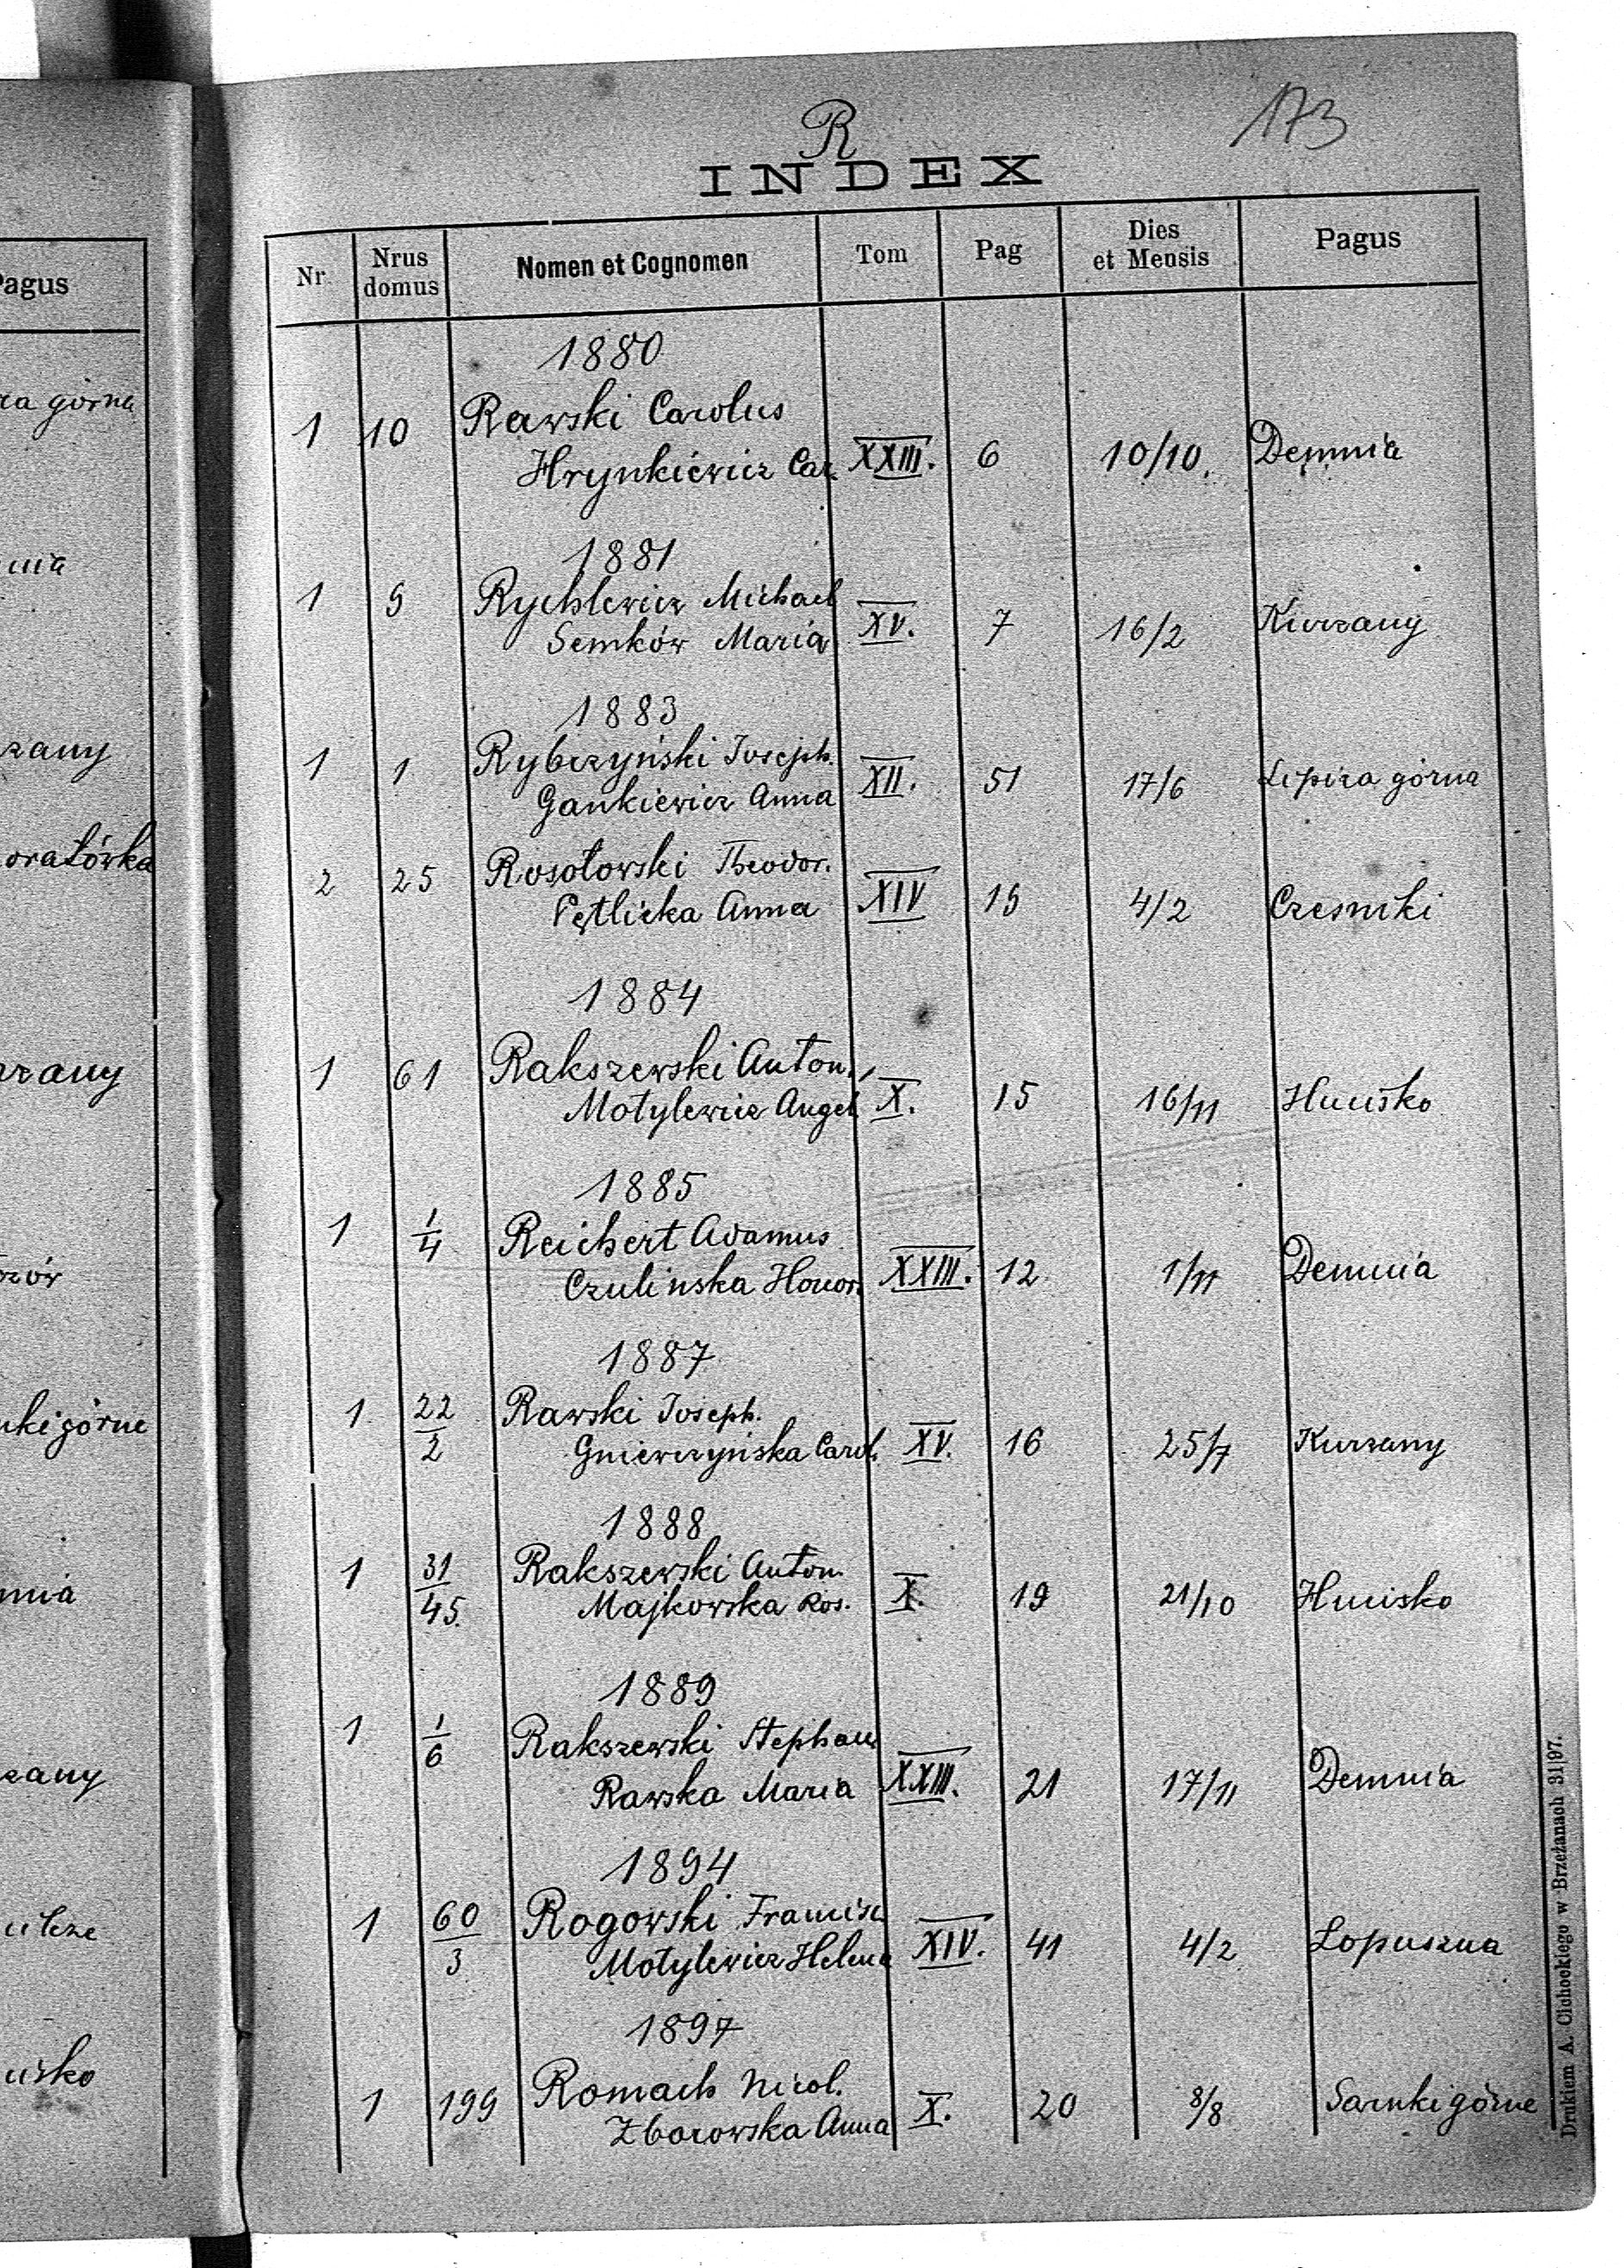 Pagus
ra górna
nia
zany
oratówka
rzany
zów
nki górne
mnia
zany
uisko
173
R
INDEX
Nr Nrus domus Nomen et Cognomen Tom Pag Dies et Mensis Pagus
1880
1 10 Rawski Carolus
Hrynkiewicz Car. XXIII. 6 10/10. Demnia
1881
1 9 Rychlewicz Michael
Semków Maria XV. 7 16/2 Kurzany
1883
1 1 Rybczyński Joseph.
Gankiewicz Anna XII. 51 17/6 Lipica górna
2 25 Rosołowski Theodor.
Pętlicka Anna XIV 15 4/2 Czesniki
1884
1 61 Rakszewski Anton.
Motylewicz Angel. X. 15 16/11 Hucisko
1885
1 1/4 Reichert Adamus
Czulinska Honor. XXIII. 12 1/11 Demnia
1887
1 22/2 Rawski Joseph.
Gniewczyńska Carol. XV. 16 25/7 Kurzany
1888
1 31/45. Rakszewski Anton.
Majkowska Ros. X. 19 21/10 Hucisko
1889
1 1/6 Rakszewski Stephan.
Rawska Maria XXIII. 21 17/11 Demnia
1894
1 60/3 Rogowski Francisc
Motylewicz Helena XIV. 41 4/2 Lopuszna
1897
1 199 Romach Nicol.
Zborowska Anna X. 20 8/8 Sarnki górne
Drukiem A. Cichockiego w Brzeżanach 31|97.